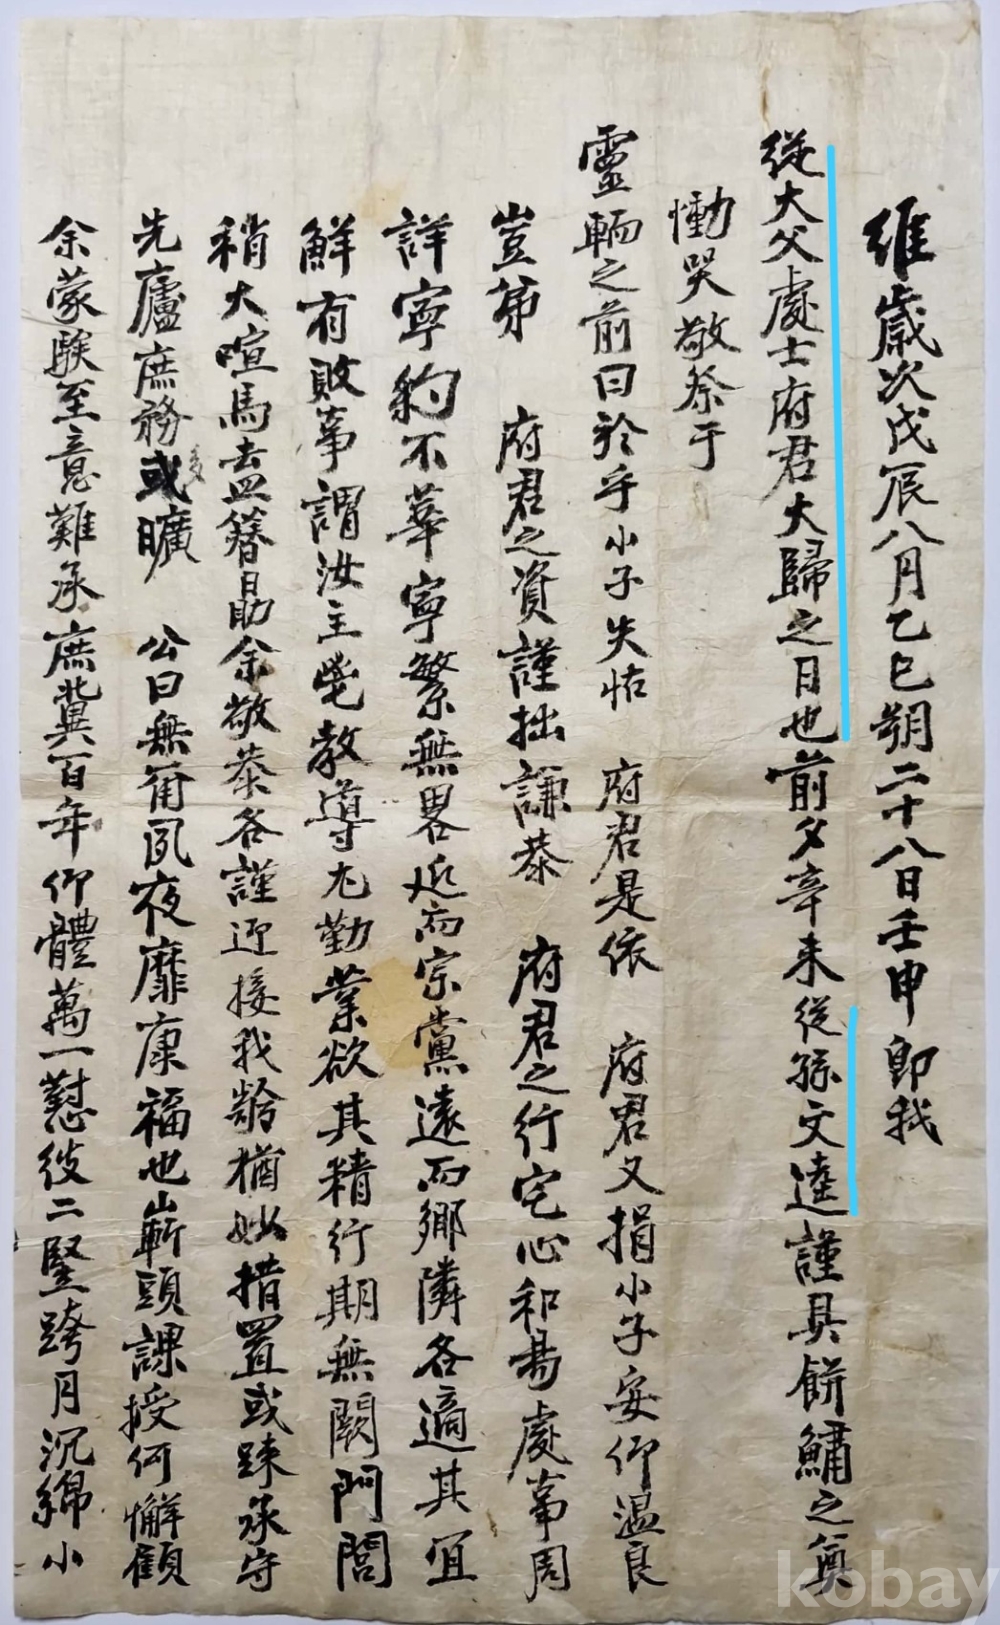 維歲次戊辰八月乙巳朔二十八日壬申 卽我
從大父處士府君大歸之日也前夕辛未從孫文達謹具餠鱐之奠
慟哭敬祭于
靈輀之前曰於乎小子失怙 府君是依 府君又捐小子安仰溫良
豈弟 府君之資謹拙謙恭 府君之行宅心和易處事周
詳寧約不華寧繁無畧近而宗黨遠而鄉隣各適其宜
鮮有敗事謂汝主鬯敎導尤勤業欲其精行期無闕門閭
稍大喧馬盍簪勗余敬恭各謹迎接我齡猶妙措置或踈承守
先廬庶務或曠 公曰無爾夙夜靡康福也嶄頭課授何懈顧
余蒙騃至意難承庶冀百年仰體萬一懟彼二竪跨月沉綿小
kobay